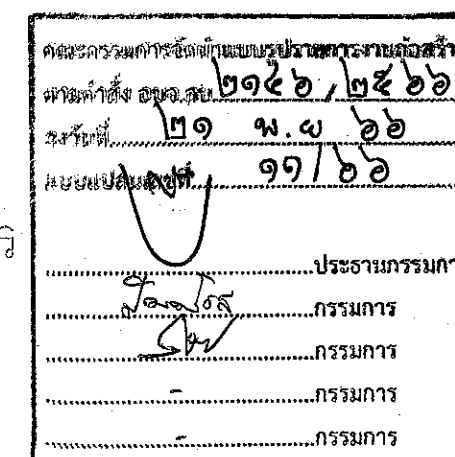 คณะกรรมการจัดทำแบบรูปรายการงานก่อสร้า
ตามคำสั่ง อบจ.ลบ ๒๑๔๖ / ๒๕๖๖
ลงวันที่ ๒๑ พ.ย ๖๖
แบบแปลนเลขที่ ๑๑/๖๖
ประธานกรรมกา
กรรมการ
กรรมการ
- กรรมการ
- กรรมการ